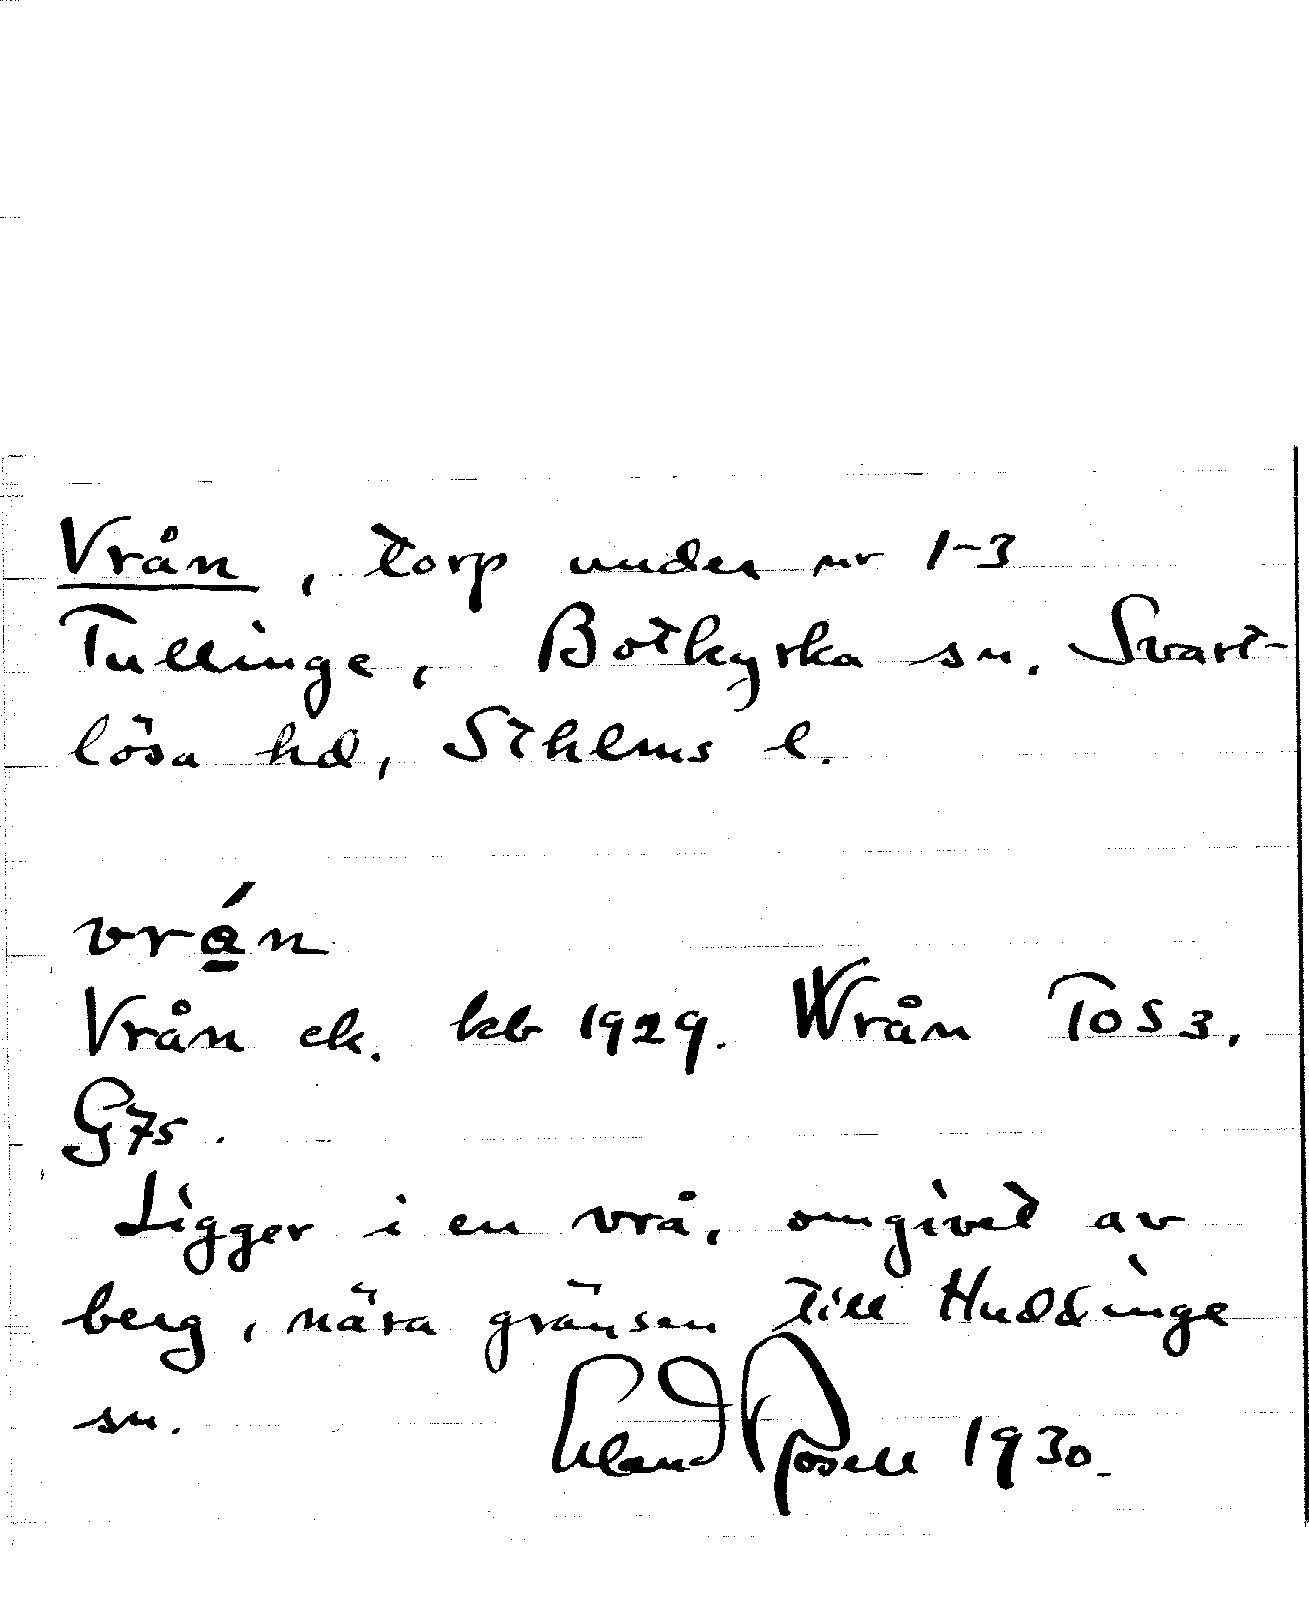 Vrån, torp under nr 1-3
Tullinge, Botkyrka sn. Svart-
lösa hd, Sthlms l.
vrá̱n
Vrån ek. kb 1929. Wrån To S 3,
G7s.
Ligger i en vrå, omgivet av
berg, nära gränsen till Huddinge
sn. Erland Rosell 1930.